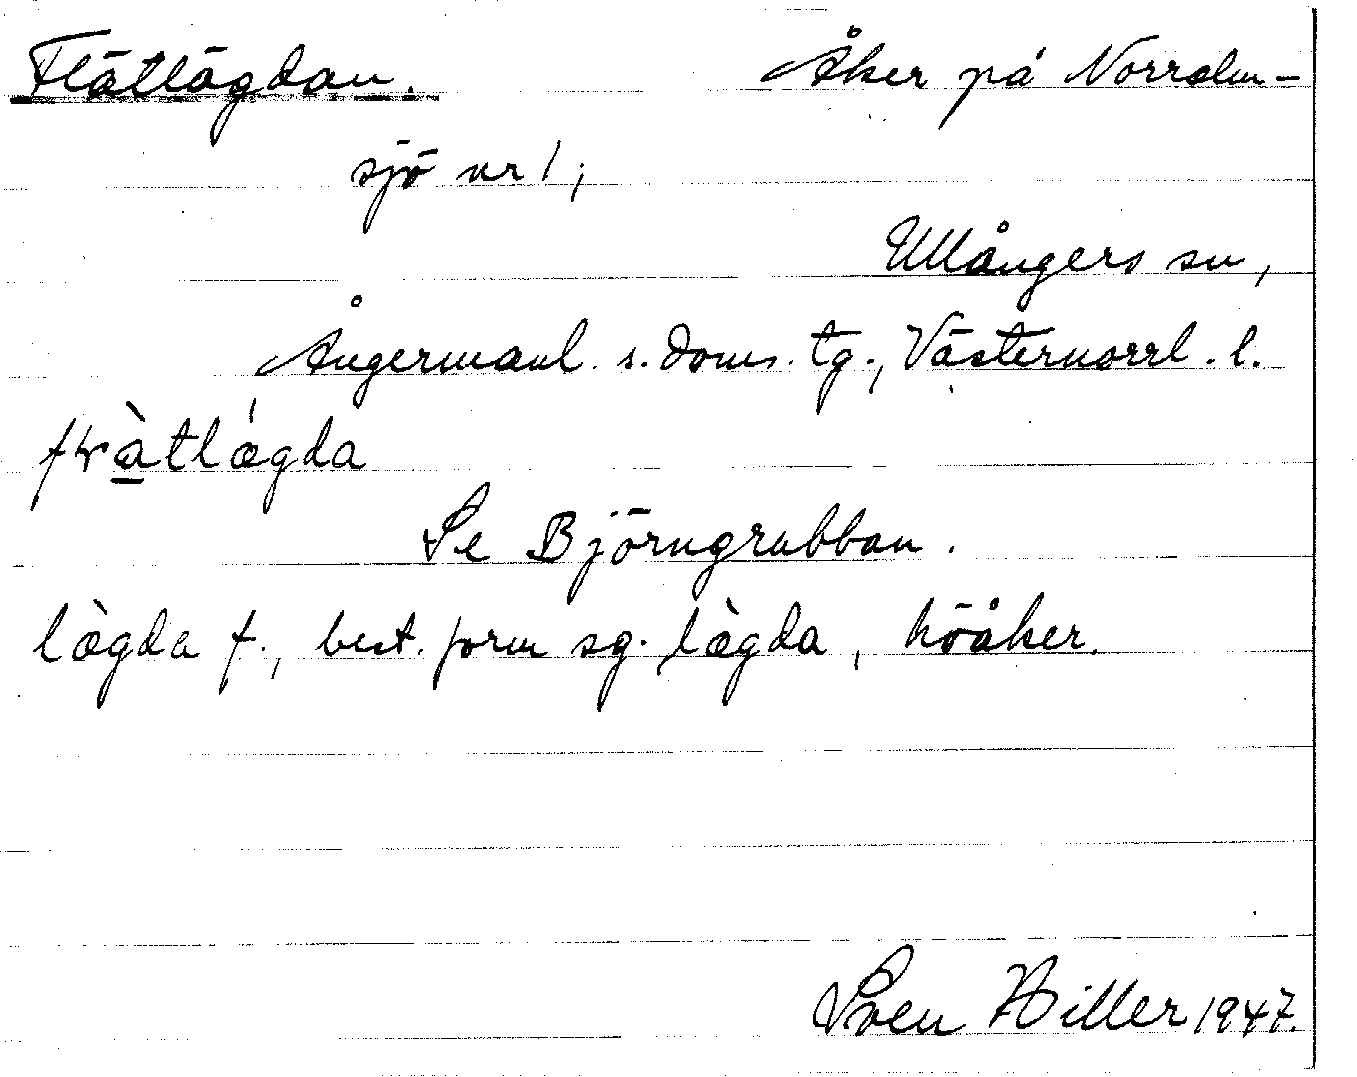 Flätlägdan. Åker på Norralm-
sjö nr 1;
Ullångers sn,
Ångermanl. s. doms. tg., Västernorrl. l.
Se Björngrubban.
lægda f., best. form sg. lægda, höåker.
Sven Hiller 1947.